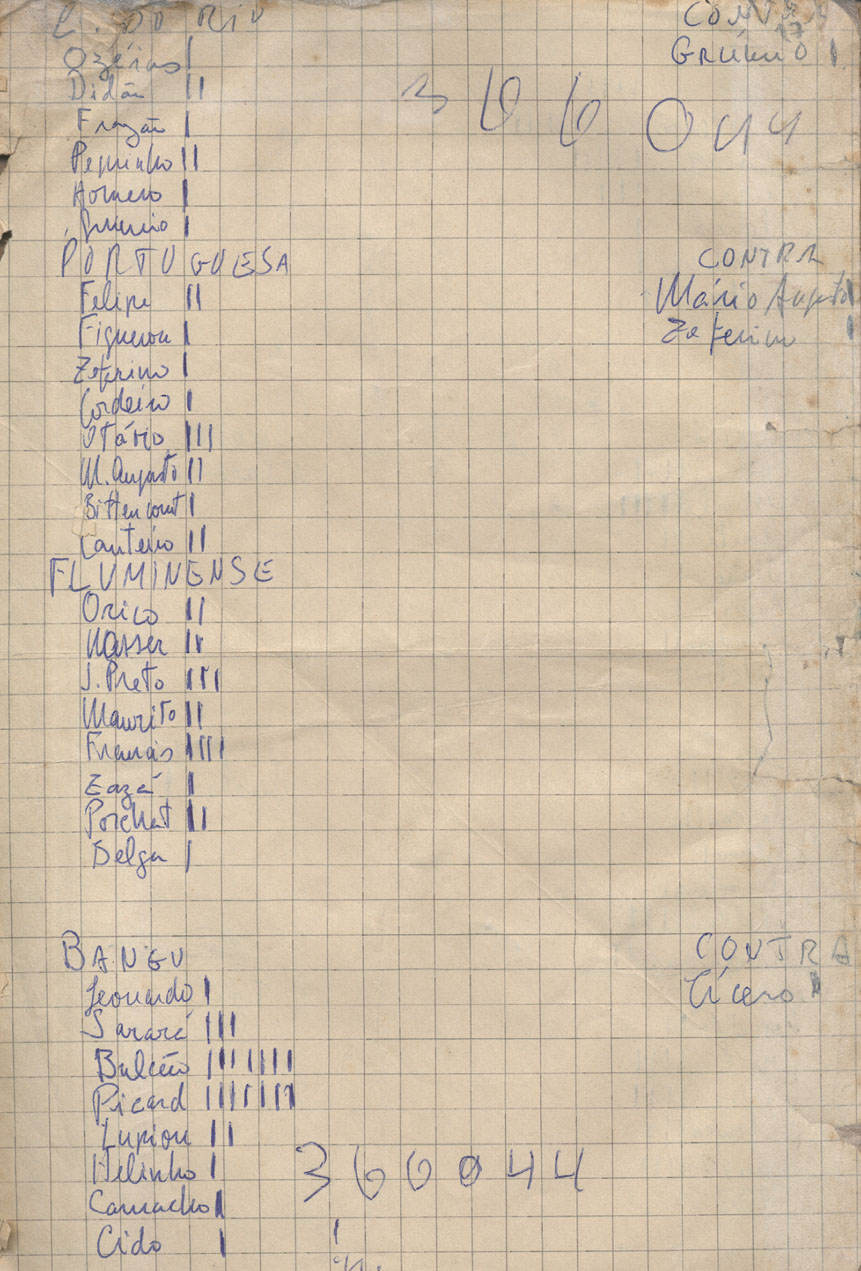 C. DO RIO CONTRA
17
Ozéias | GRÊMIO |
Didão ||
366044
Frazão |
Pequinho ||
Homero |
PORTUGUESA CONTRA
Felipe || Mário Augusto |
Figueroa | Zeferino |
Zeferino |
Cordeiro |
Otávio |||
M. Augusto ||
Bittencourt |
Canteiro ||
FLUMINENSE
Orico ||
Nasser ||
J. Preto |||
Maurito ||
Francês ||||
Zazá |
Porchat ||
Delga |
BANGU CONTRA
Leonardo | Cícero |
Sarará |||
Bulcão ||||||||
Picard ||||||||
Lupion ||
Helinho | 366044
Camacho |
Cido | |